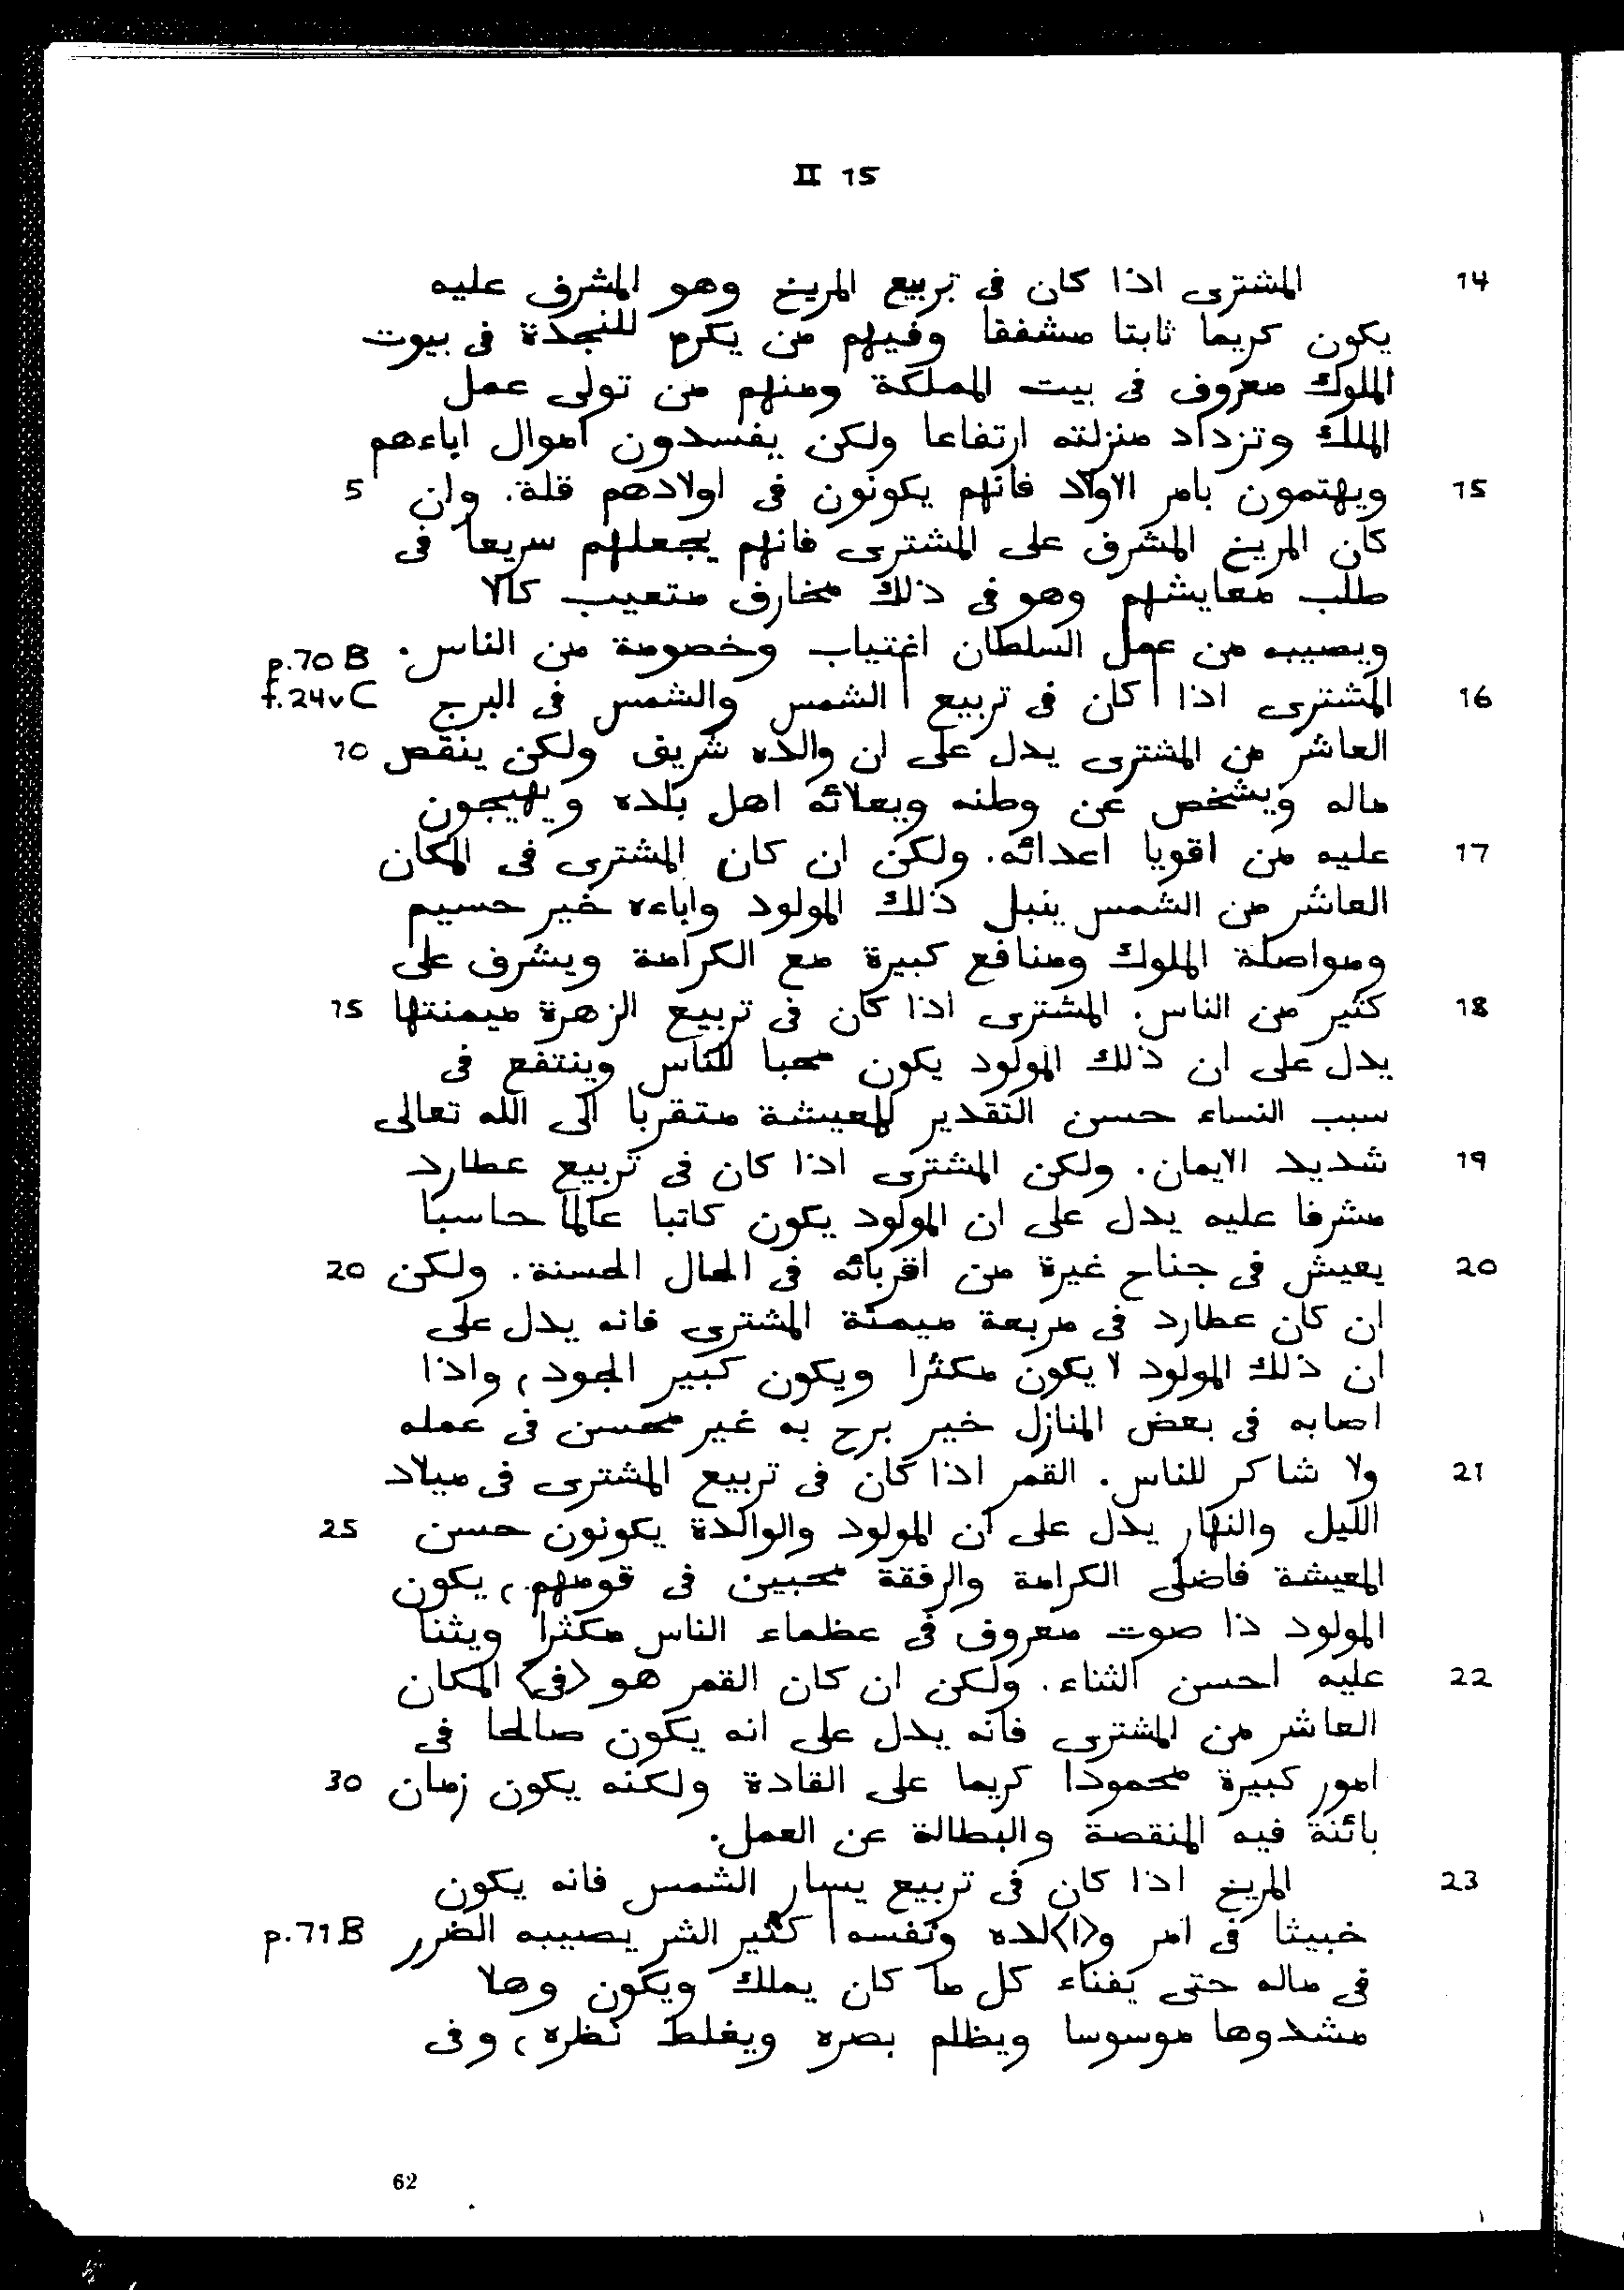 II 15
14 المشترى اذا كان فى تربيع المريخ وهو المشرف عليه
يكون كريما ثابتا مشفقا وفيهم من يكرم للنجدة فى بيوت
الملوك معروف فى بيت المملكة ومنهم من تولى عمل
الملك وتزداد منزلته ارتفاعا ولكن يفسدون اموال اباءهم
15 ويهتمون بامر الاولاد فانهم يكونون فى اولادهم قلة. وان 5
كان المريخ المشرف على المشترى فانهم يجعلهم سريعا فى
طلب معايشهم وهو فى ذلك مخارف متعيب كالا
ويصيبه من عمل السلطان اغتياب وخصومة من الناس. p.70 B
16 المشترى اذا | كان فى تربيع | الشمس والشمس فى البرج f.24v C
العاشر من المشترى يدل على ان والده شريف ولكن ينقص 10
ماله ويشخص عن وطنه ويعلائه اهل بلده ويهيجون
17 عليه من اقويا اعدائه. ولكن ان كان المشترى فى المكان
العاشر من الشمس ينبل ذلك المولود واباءه خير حسيم
ومواصلة الملوك ومنافع كبيرة مع الكرامة ويشرف على
18 كثير من الناس. المشترى اذا كان فى تربيع الزهرة ميمنتها 15
يدل على ان ذلك المولود يكون محبا للناس وينتفع فى
سبب النساء حسن التقدير للمعيشة متقربا الى الله تعالى
19 شديد الايمان. ولكن المشترى اذا كان فى تربيع عطارد
مشرفا عليه يدل على ان المولود يكون كاتبا عالما حاسبا
20 يعيش فى جناح غيرة من اقربائه فى الحال الحسنة. ولكن 20
ان كان عطارد فى مربعة ميمنة المشترى فانه يدل على
ان ذلك المولود لا يكون مكثرا ويكون كبير الجود، واذا
اصابه فى بعض المنازل خير برح به غير محسن فى عمله
21 ولا شاكر للناس. القمر اذا كان فى تربيع المشترى فى ميلاد
الليل والنهار يدل على ان المولود والوالدة يكونون حسن 25
المعيشة فاضلى الكرامة والرفقة محبين فى قومهم، يكون
المولود ذا صوت معروف فى عظماء الناس مكثرا ويثنا
22 عليه احسن الثناء. ولكن ان كان القمر هو <فى> المكان
العاشر من المشترى فانه يدل على انه يكون صالحا فى
امور كبيرة محمودا كريما على القادة ولكنه يكون زمان 30
بائنة فيه المنقصة والبطالة عن العمل.
23 المريخ اذا كان فى تربيع يسار الشمس فانه يكون
خبيثا فى امر و<ا>لده ونفسه | كثير الشر يصيبه الضرر p.71 B
فى ماله حتى يفناء كل ما كان يملك ويكون وهلا
مشدوها موسوسا ويظلم بصره ويغلط نظره، وفى
62